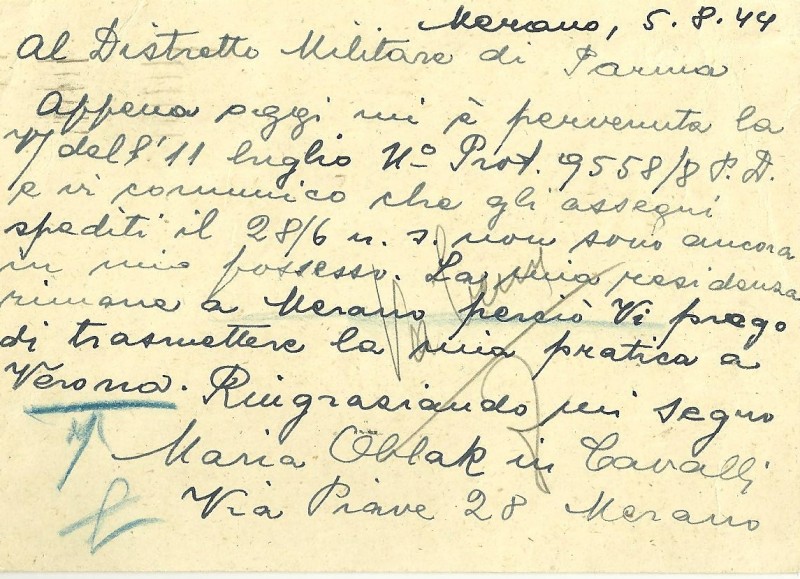 Merano, 5.8.44
Al Distretto Militare di Parma
Appena oggi mi è pervenuta la
V/ dell'11 luglio Nº Prot. 9558/8 P.D.
e vi comunico che gli assegni
spediti il 28/6 u. s. non sono ancora
in mio possesso. La mia residenza
rimane a Merano perciò Vi prego
di trasmettere la mia pratica a
Verona. Ringrasiando mi segno
Maria Oblak in Cavalli
Via Piave 28 Merano